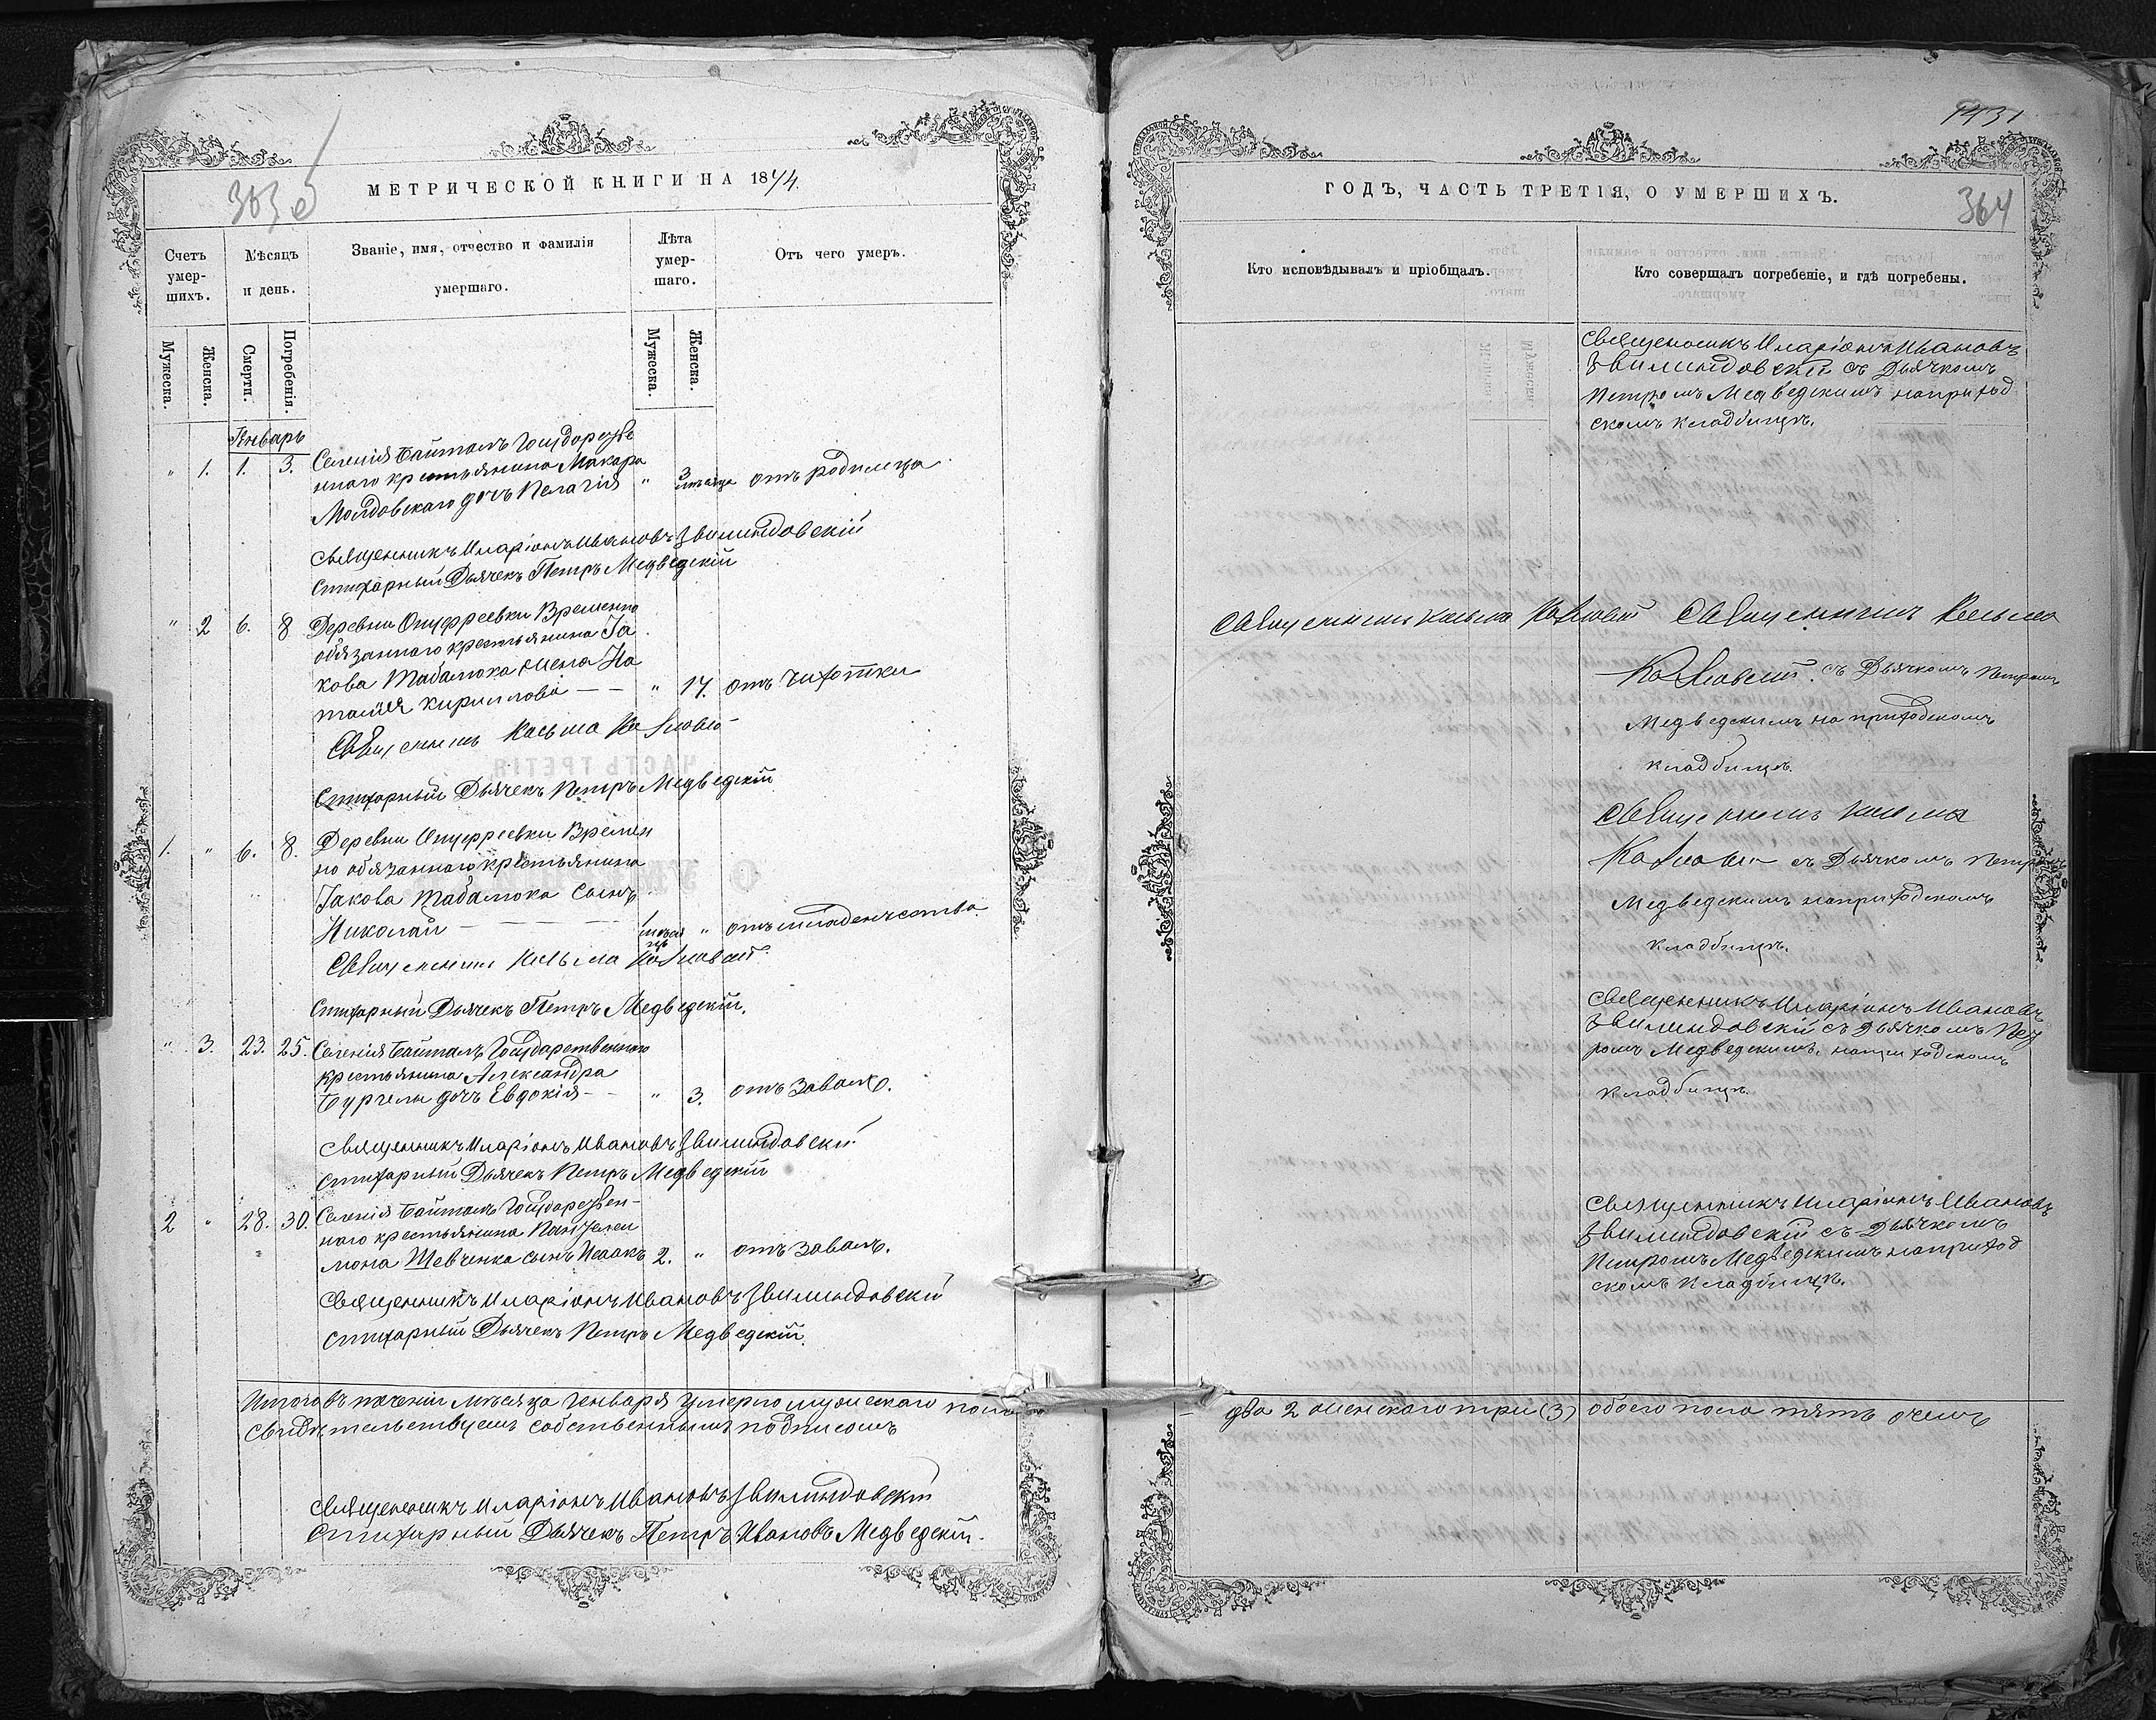 303 б
МЕТРИЧЕСКОЙ КНИГИ НА 1874.
Счетъ умер-шихъ.
Мѣсяцъ и день.
Званіе, имя, отчество и фамилія умершаго.
Лѣта умер-шаго.
Отъ чего умеръ.
Мужеска.
Женска.
Смерти.
Погребенія.
Мужеска.
Женска.
Январь
" 1. 1. 3. Селенія Байталъ Государстве
ннаго крестьянина Макара
Молдовскаго дочь Пелагія " 3 мѣсяца отъ родимца
Священникъ Иларіонъ Ивановъ Звилиндовскій
Стихарный Дьячекъ Петръ Медведскій
" 2 6. 8 Деревни Онуфреевки Временно
обязаннаго крестьянина Іа
кова Табалюка жена На
талия Кириллова — — " 17. отъ чихотки
Священникъ Косьма
Стихарный Дьячекъ Петръ Медведскій
1. " 6. 8. Деревни Онуфреевки Времен
но обязаннаго крестьянина
Іакова Табалюка Сынъ
Николай — 1 мѣсяцъ " отъ младенчества.
Священникъ Косьма
Стихарный Дьячекъ Петръ Медведскій.
" 3. 23. 25. Селенія Байталъ Государственнаго
крестьянина Александра
дочь Евдокія — " 3. отъ завалъ.
Священникъ Иларіонъ Ивановъ Звилиндовскій
Стихарный Дьячекъ Петръ Медведскій
2 " 28. 30. Селенія Байталъ Государствен-
наго крестьянина Пантелеи
мона Шевченка сынъ Исаакъ 2. " отъ завалъ.
Священникъ Иларіонъ Ивановъ Звилиндовскій
Стихарный Дьячекъ Петръ Медведскій.
Итого въ теченіи Мѣсяца Генваря Умерло мужескаго пола
Свидѣтельствуемъ собственнымъ подписомъ
Священникъ Иларіонъ Ивановъ Звилиндовскій
Стихарный Дьячекъ Петръ Ивановъ Медведскій.
1431
364
ГОДЪ, ЧАСТЬ ТРЕТІЯ, О УМЕРШИХЪ.
Кто исповѣдывалъ и пріобщалъ.
Кто совершалъ погребеніе, и гдѣ погребены.
Священникъ Иларіонъ Ивановъ
Звилиндовскій съ Дьячкомъ
Петромъ Медведскимъ на приход
скомъ кладбищѣ.
Священникъ Косьма
Священникъ Косьма
съ Дьячкомъ Петромъ
Медведскимъ на приходскомъ
кладбищѣ.
Священникъ Косьма
съ Дьячкомъ Петромъ
Медведскимъ на приходскомъ
кладбищѣ.
Священникъ Иларіонъ Ивановъ
Звилиндовскій съ Дьячкомъ Пет
ромъ Медведскимъ на приходскомъ
кладбищѣ.
Священникъ Иларіонъ Ивановъ
Звилиндовскій съ Дьячкомъ
Петромъ Медведскимъ на приход
скомъ кладбищѣ.
два 2 женскаго три (3) обоего пола пять о чемъ